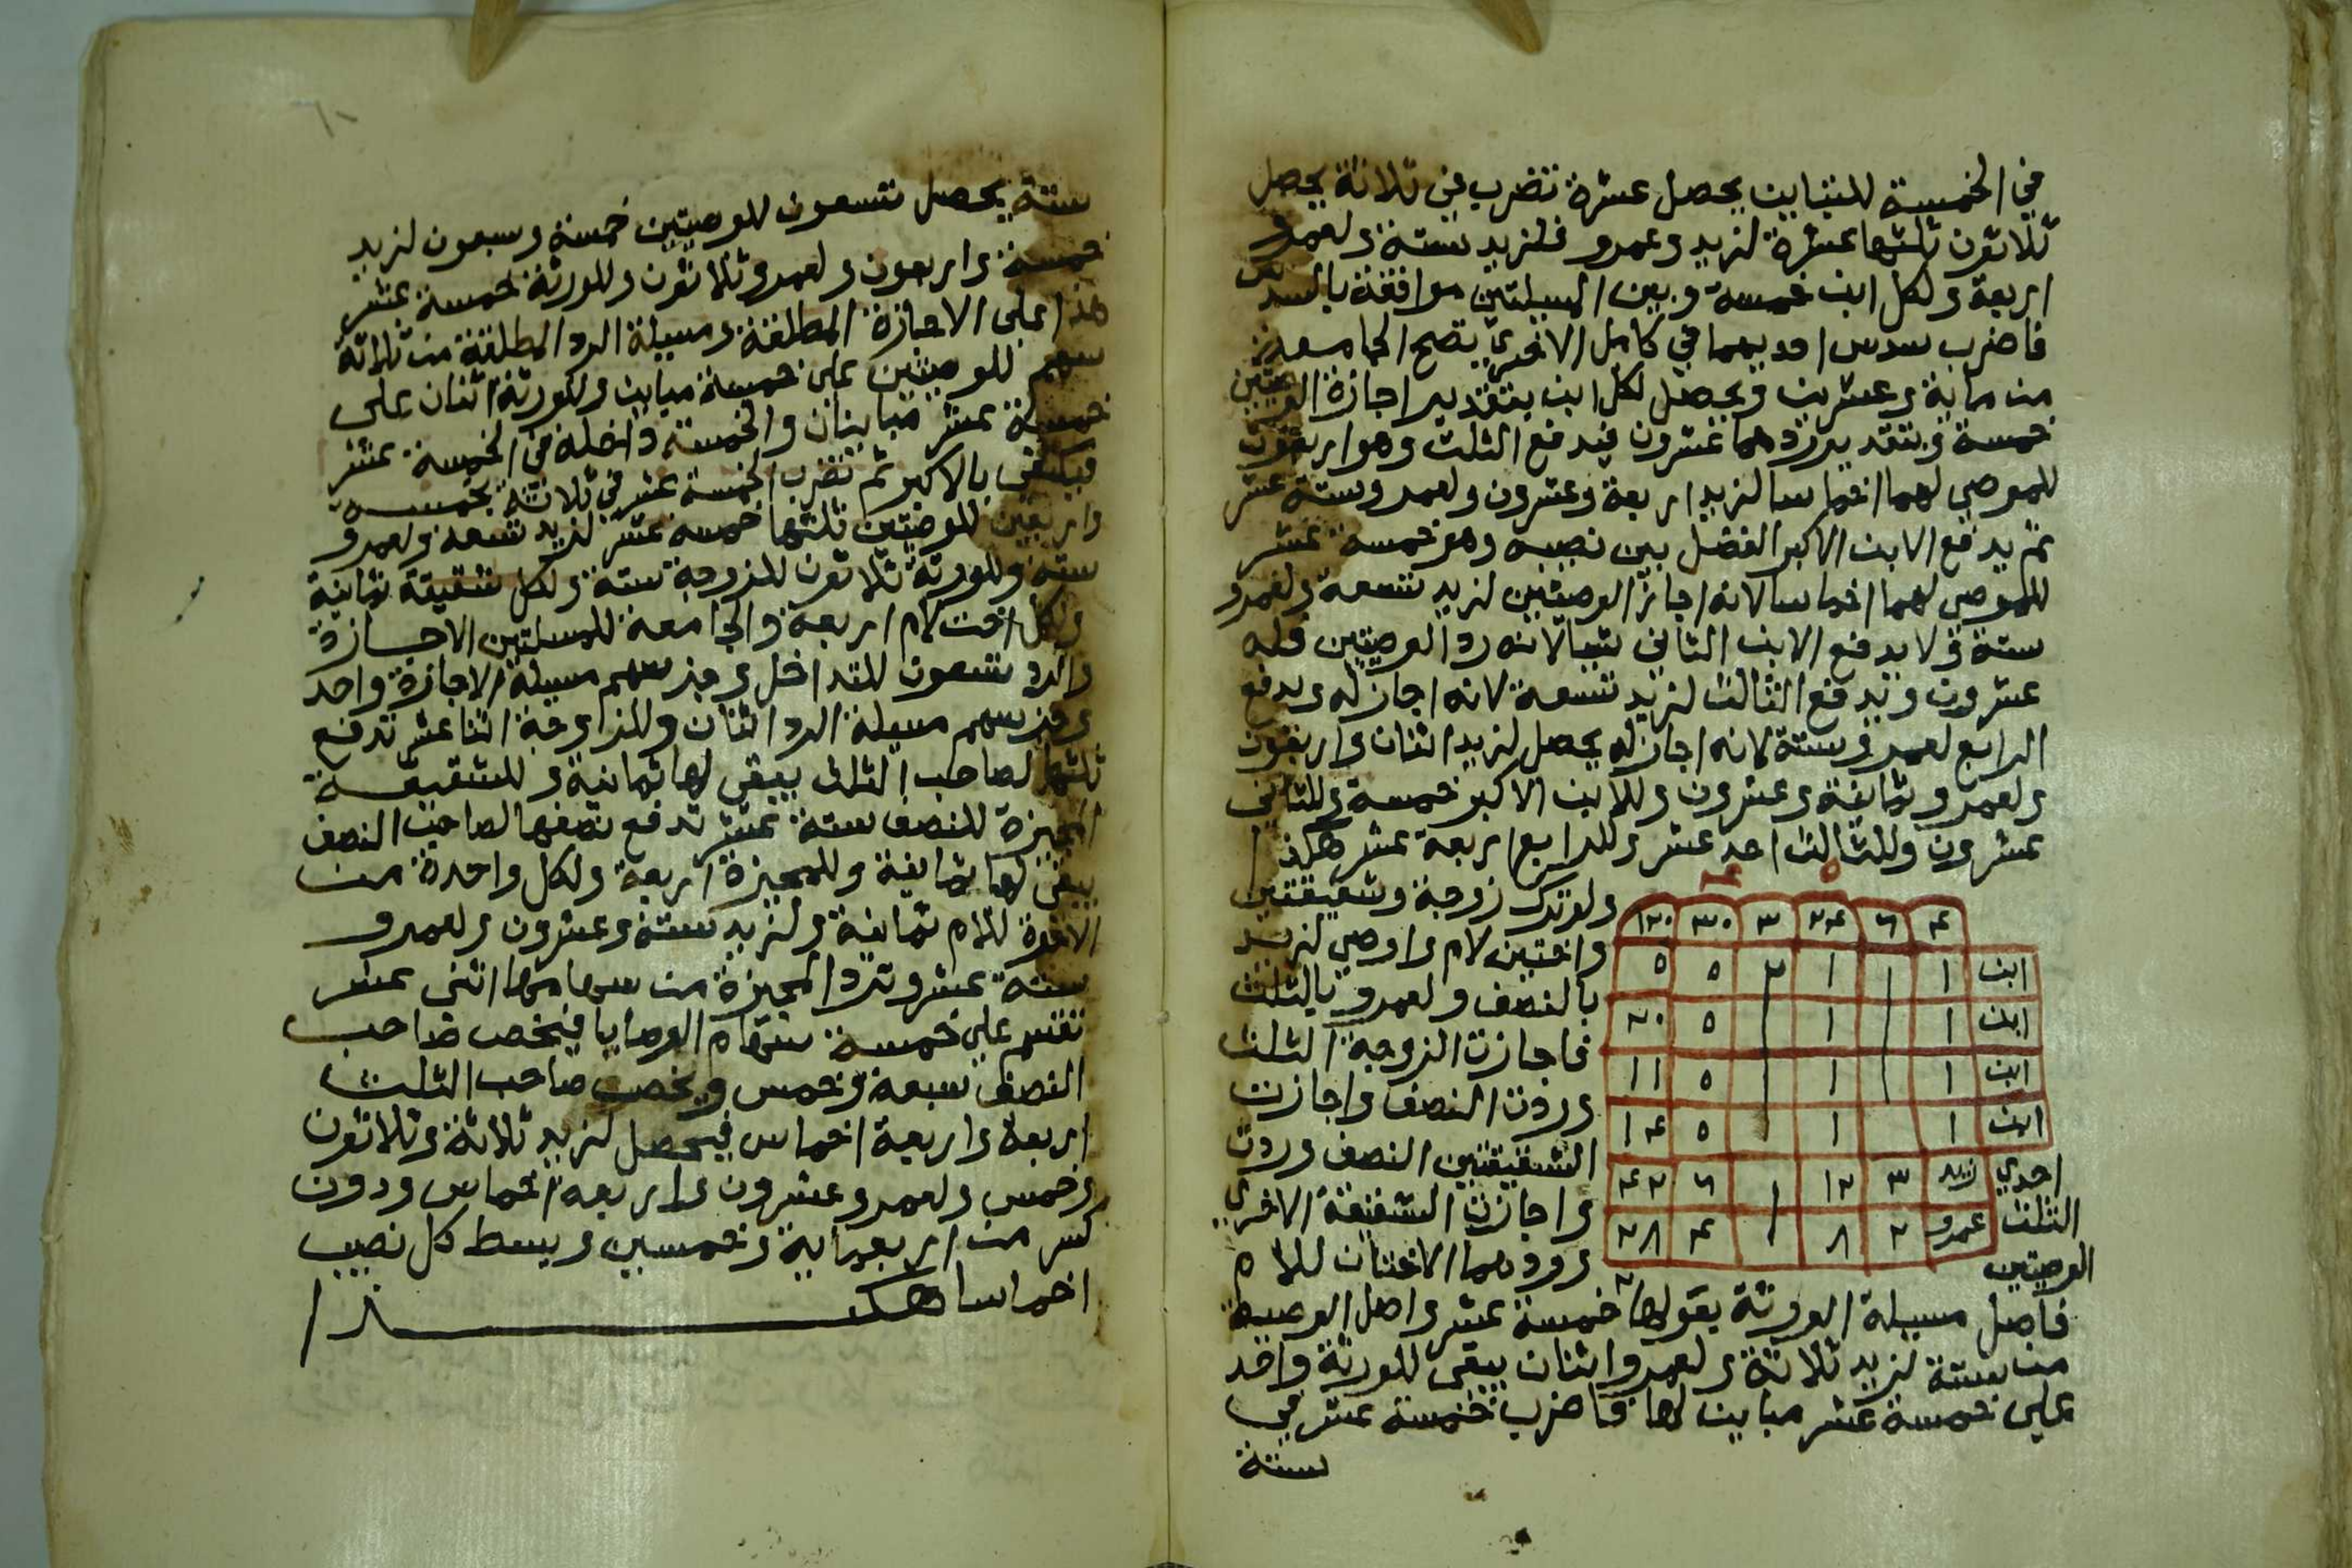 في الخمسة للتباين يحصل عشرة تضرب في ثلاثة يحصل
ثلاثون ثلثها عشرة لزيد وعمرو فلزيد ستة ولعمرو
اربعة ولكل ابن خمسة وبين المسيلتين موافقة بالسدس
فاضرب سدس احديهما في كامل الاخرى تصح الجامعة
من ماية وعشرين ويحصل لكل ابن بتقدير اجازة الوصيتين
خمسة وبتقدير ردهما عشرون فيدفع الثلث وهو اربعون
للموصي لهما اخماسا لزيد اربعة وعشرون ولعمرو ستة عشر
ثم يدفع الابن الاكبر الفضل بين نصيبه وهو خمسة عشر
للموصي لهما اخماسا لانه اجاز الوصيتين لزيد تسعة ولعمرو
ستة ولا يدفع الابن الثاني شيا لانه رد الوصيتين فله
عشرون ويدفع الثالث لزيد تسعة لانه اجاز له ويدفع
الرابع لعمرو ستة لانه اجاز له يحصل لزيد اثنان واربعون
ولعمرو ثمانية وعشرون وللابن الاكبر خمسة وللثاني
عشرون وللثالث احد عشر وللرابع اربعة عشر هكذا
ولو ترك زوجة وشقيقتين
واختين لام واوصي لزيد
بالنصف ولعمرو بالثلث
فاجازت الزوجة الثلث
وردت النصف واجازت
احدي الشقيقتين النصف وردت
الثلث واجازت الشقيقة الاخري
الوصيتين وردهما الاختان للام
٥
٤ ٦ ٢٤ ٣ ٣٠ ١٢٠
ابن ١ ١ ١ ٢ ٥ ٥
ابن ١ ١ ٥ ٢٠
ابن ١ ١ ٥ ١١
ابن ١ ١ ٥ ١٤
زيد ٣ ١٢ ١ ٦ ٤٢
عمرو ٢ ٨ ٤ ٢٨
فاصل مسيلة الورثة بعولها خمسة عشر واصل الوصية
من ستة لزيد ثلاثة ولعمرو اثنان يبقى للورثة واحد
على خمسة عشر مباين لها فاضرب خمسة عشر في
ستة
ستة يحصل تسعون للوصيتين خمسة وسبعون لزيد
خمسة واربعون ولعمرو ثلاثون وللورثة خمسة عشر
هذا على الاجازة المطلقة ومسيلة الرد المطلقة من ثلاثة
سهم للوصيتين على خمسة مباين وللورثة اثنان على
خمسة عشر متباينان والخمسة داخلة في الخمسة عشر
فيكتفى بالاكبر ثم تضرب الخمسة عشر في ثلاثة بخمسة
واربعين للوصيتين ثلثها خمسة عشر لزيد تسعة ولعمرو
ستة وللورثة ثلاثون للزوجة ستة ولكل شقيقة ثمانية
ولكل اخت لام اربعة والجامعة للمسلتين الاجازة
والرد تسعون للتداخل وجز سهم مسيلة الاجازة واحد
وجز سهم مسيلة الرد اثنان وللزاوجة اثنا عشر تدفع
ثلثها لصاحب الثلث يبقى لها ثمانية وللشقيقة
المجيزة للنصف ستة عشر تدفع نصفها لصاحب النصف
يبقى لها ثمانية وللمجيزة اربعة ولكل واحدة من
الاخوة للام ثمانية ولزيد ستة وعشرون ولعمرو
ستة عشر وترد المجيزة من سهامها اثنى عشر
تقسم على خمسة سهام الوصايا فيخص صاحب
النصف سبعة وخمس ويخص صاحب الثلث
اربعة واربعة اخماس فيحصل لزيد ثلاثة وثلاثون
وخمس ولعمرو عشرون واربعة اخماس ودون
كسر من اربعماية وخمسين ويبسط كل نصيب
اخماسا هكذا